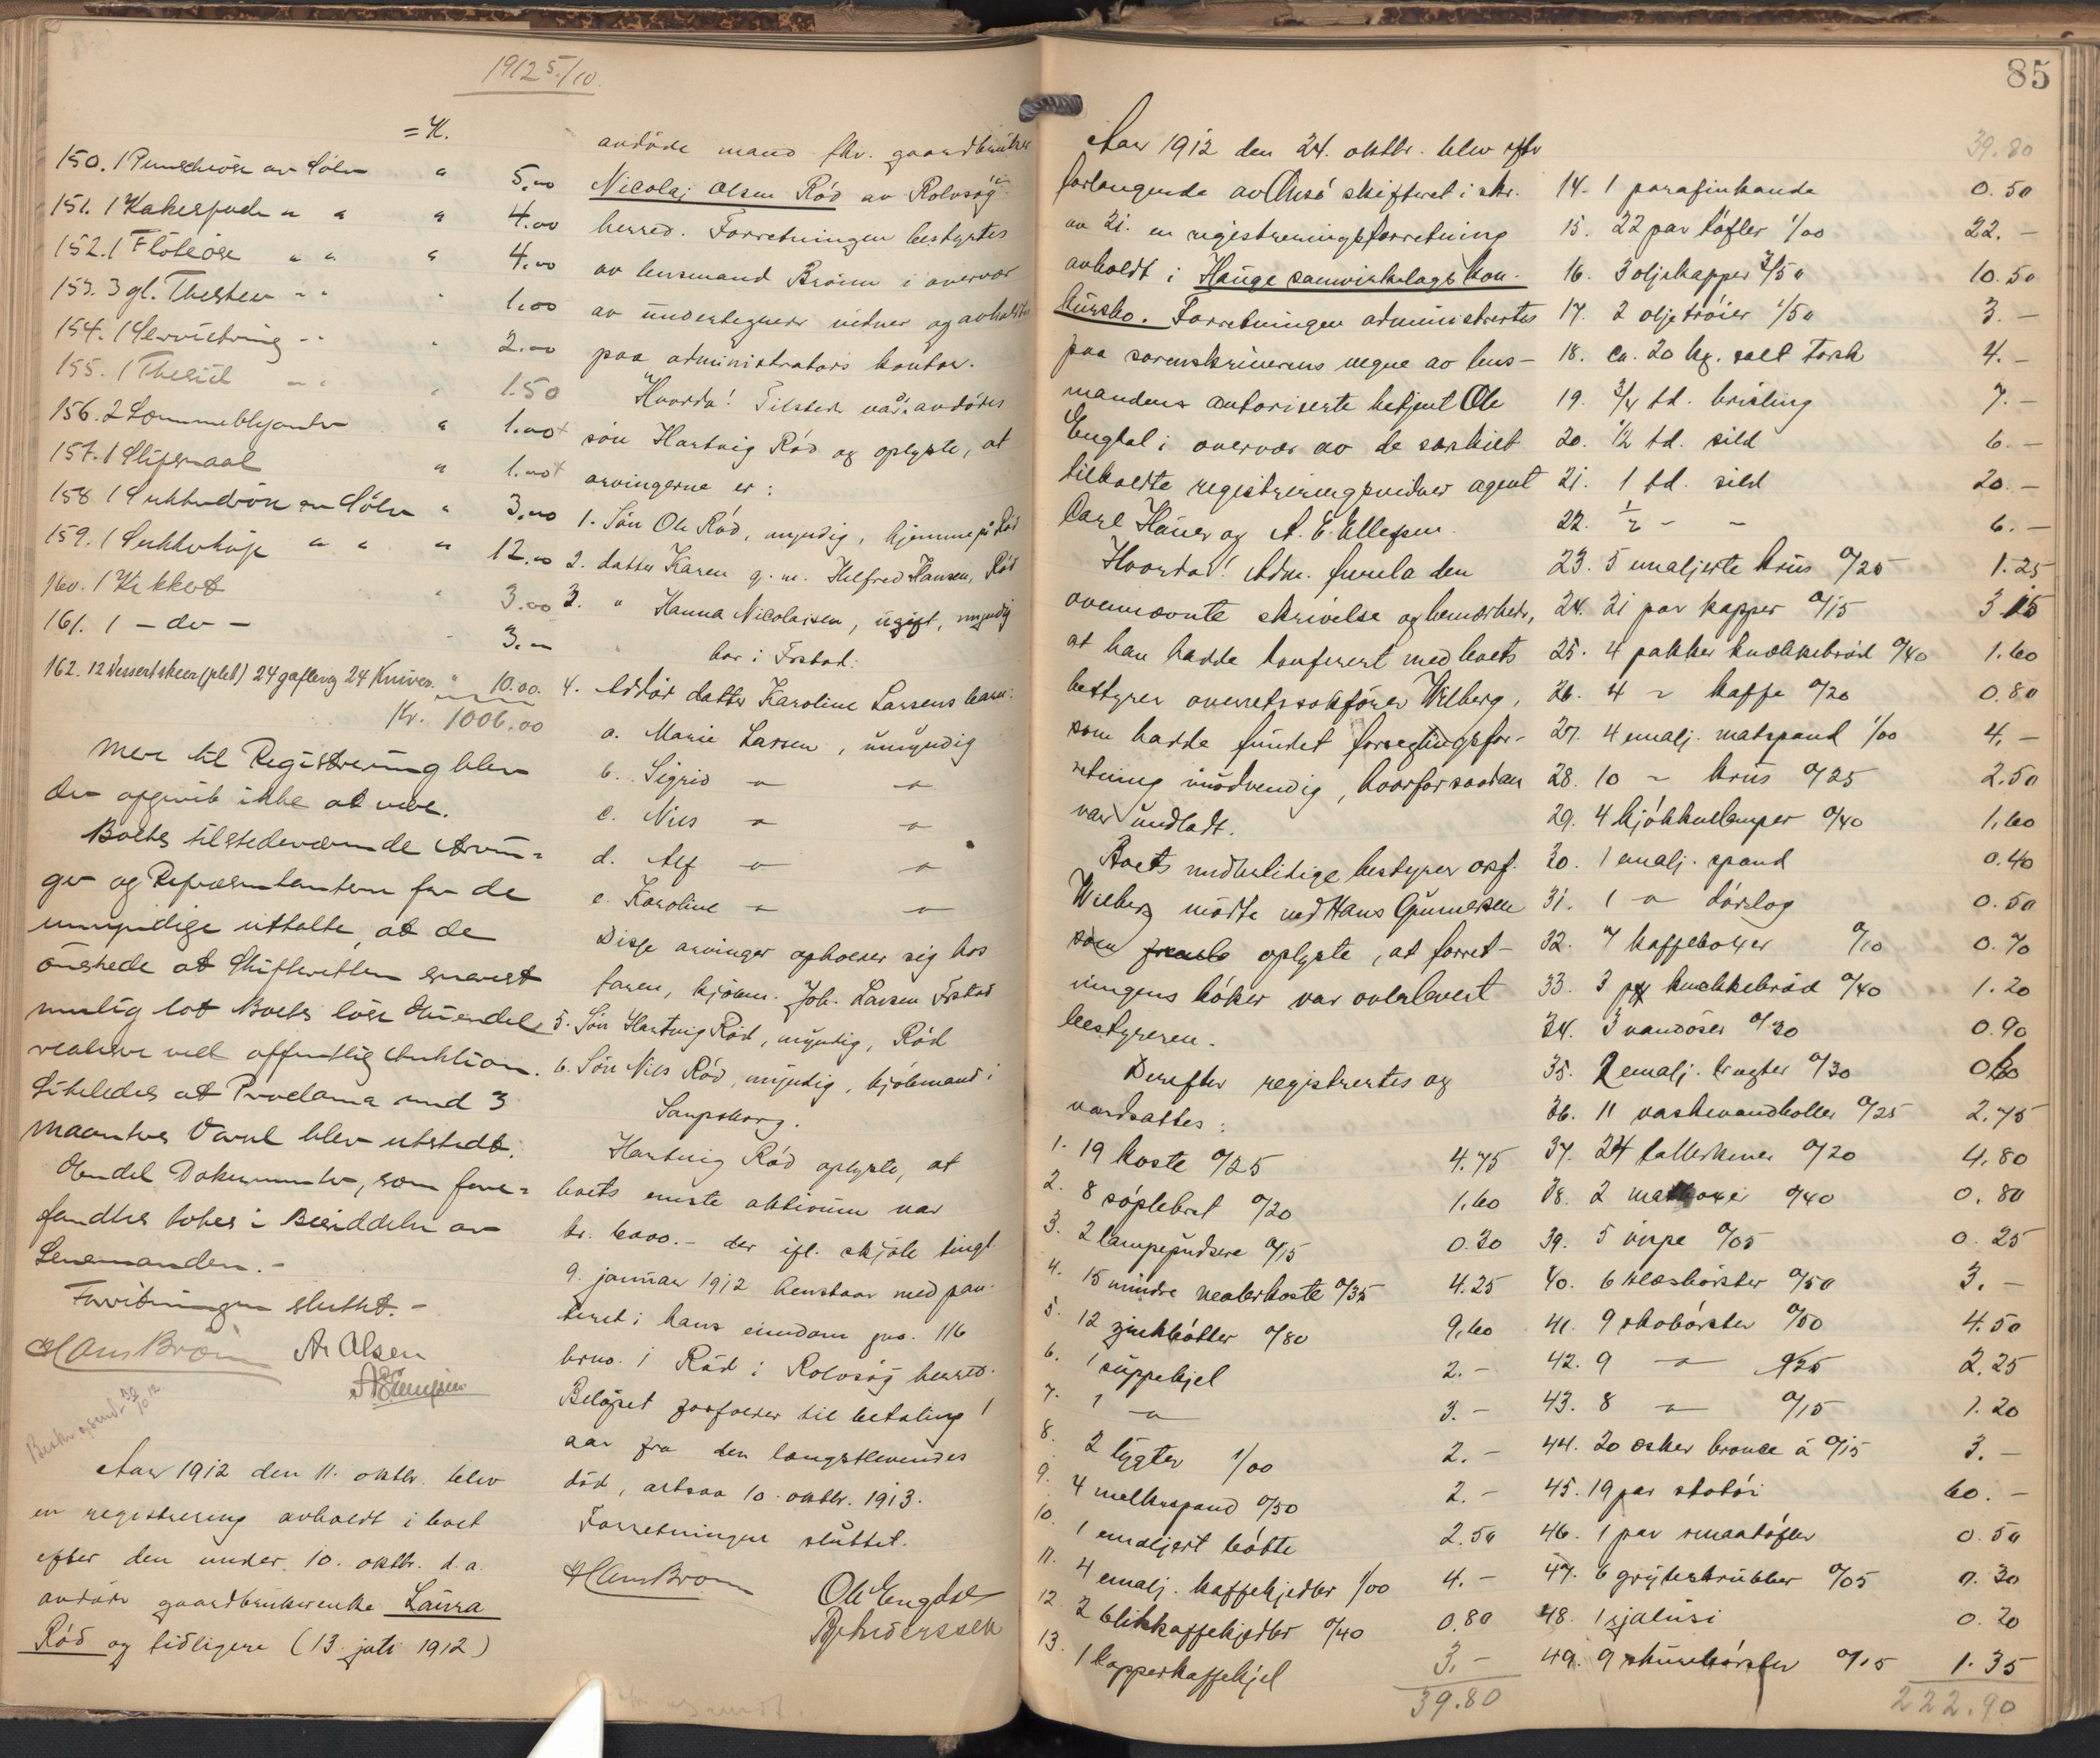 1912 5/10.
= K.
150. 1 Punscheöse av Sölv " 5.00
151. 1 Kakespade " " " 4.00
152. 1 Flöteöse " " " 4.00
153. 3 gl. Theskeer " " " 1.00
154. 1 Serviétring " " " 2.00
155. 1 Thesiel " " " 1.50
156. 2 Lommeblyanter " 1.00
157. 1 Slipsnaal " 1.00
158. 1 Sukker av Sölv " 3.00
159. 1 Sukkerkop " " " 12.00
160. 1 Kikkert " 3.00
161. 1 - do - " 3.00
162. 12 Dessertskeer (plet) 24 gafler og 24 Kniver. " 10.00.
Kr. 1006.00
Mere til Registrering blev
der opgivet ikke at være.
Boets tilstedeværende Arvin=
ger og Repræsentanten for de
umyndige uttalte, at de
önskede at Skifteretten snarest
mulig lot Boets löse Eiendele
realisere ved offentlig Auktion.
Likeledes at Proclama med 3
Maaneders Varsel blev utstedt.
Endel Dokumenter, som fore=
fandtes tokes i Besiddelse av
Lensmanden. -
Forretningen sluttet. -
Hans Brönn Ar. Olsen
Beskr. og sendt 30/10 12
Aar 1912 den 11. oktbr. blev
en registrering avholdt i boet
efter den under 10. oktbr. d.a.
avdöde gaardbrukerenke Laura
Röd og tidligere (13. juli 1912)
avdöde mand fhv. gaardbruker
Nicolaj Olsen Röd av Rolvsöy
herred. Forretningen bestyrtes
av lensmand Brönn i overvær
av undertegnede vidner og avholdtes
paa administrators kontor.
Hvorda! Tilstede var avdödes
sön Hartvig Röd og oplyste, at
arvingerne er:
1. Sön Ole Röd, myndig, hjemme på Röd
2. datter Karen g.m. Hilfred Hansen, Röd
3. " Hanna Nicolaisen, ugift, myndig
bor i Frstad.
4. Avdöd datter Karoline Larsens barn:
a. Marie Larsen, umyndig
b. Sigrid " "
c. Nils " "
d. Alf " "
e. Karoline " "
Disse arvinger opholder sig hos
faren, kjöbm. Joh. Larsen Frstad
5. Sön Hartvig Röd, myndig, Röd
6. Sön Nils Röd, myndig, kjöbmand i
Sarpsborg.
Hartvig Röd oplyste, at
boets eneste aktivum var
kr. 6000.- der ifl. skjöte tingl.
9. januar 1912 henstaar med pan-
teret i hans eiendom gno. 116
brno. 1 Röd i Rolvsöy herred.
Belöpet forfalder til betaling 1
aar fra den længstlevendes
död, altsaa 10. oktbr. 1913.
Forretningen sluttet.
Hans Brönn
Ole Engdal
85
Aar 1912 den 24. oktbr. blev efter
forlangende av Onsö skifteret i skr.
av 21. en registreringsforretning
avholdt i Hauge samvirkelags kon-
kursbo. Forretningen administrertes
paa sorenskriverens vegne av lens-
mandens autoriserte betjent Ole
Engdal i overvær av de særskilt
tilkaldte registreringsvidner agent
Carl Hauer og A. E. Ellefsen.
Hvorda! Adm. fremla den
ovennævnte skrivelse og bemerkede,
at han hadde konferert med boets
bestyrer overretssakförer Wilberg,
som hadde fundet forseglingsfor-
retning unödvendig, hvorfor saadan
var undladt.
Boets midlertidige bestyrer osf.
Wilberg mötte ved Hans Gunnersen
som oplyste, at forret-
ningens böker var overlevert
bestyreren.
Derefter registrertes og
værdsattes:
1. 19 koste 0/25 4.75
2. 8 söplebret 0/20 1.60
3. 2 lampepudsere 0/15 0.30
4. 15 mindre malerkoste 0/35 4.25
5. 12 zinkbötter 0/80 9.60
6. 1 suppekjel 2.-
7. 1 " 3.-
8. 2 lygter 1/00 2.-
9. 4 melkespand 0/50 2.-
10. 1 emaljert bötte 2.50
11. 4 emalj. kaffekjedler 1/00 4.-
12. 2 blikkaffekjedler 0/40 0.80
13. 1 kopperkaffekjel 3.-
39.80
39.80
14. 1 parafinkande 0.50
15. 22 par töfler 1/00 22.-
16. 3 oljekapper 3/50 10.50
17. 2 oljetröier 1/50 3.-
18. ca. 20 kg. salt torsk 4.-
19. 3/4 td. brisling 7.-
20. 1/2 td. sild 6.-
21. 1 td. sild 20.-
22. 1/2 - - 6.-
23. 5 emaljerte krus 0/25 1.25
24. 21 par kopper 0/15 3.15
25. 4 pakker knækkebröd 0/40 1.60
26. 4 " kaffe 0/20 0.80
27. 4 emalj. matspand 1/00 4.-
28. 10 " krus 0/25 2.50
29. 4 kjökkenlamper 0/40 1.60
30. 1 emalj. spand 0.40
31. 1 " dörslag 0.50
32. 7 kaffebokser 0/10 0.70
33. 3 pk knækkebröd 0/40 1.20
34. 3 vandöser 0/30 0.90
35. 2 emalj. tragter 0/30 0.60
36. 11 vaskevandboller 0/25 2.75
37. 24 tallerkener 0/20 4.80
38. 2 matbokser 0/40 0.80
39. 5 vispe 0/05 0.25
40. 6 klæsbörster 0/50 3.-
41. 9 skobörster 0/50 4.50
42. 9 " 0/25 2.25
43. 8 " 0/15 1.20
44. 20 æsker bronse á 0/15 3.-
45. 19 par skotöi 60.-
46. 1 par smaatöfler 0.50
47. 6 grýteskrubber 0/05 0.30
48. 1 sjalusi 0.20
49. 9 skurebörster 0/15 1.35
222.90